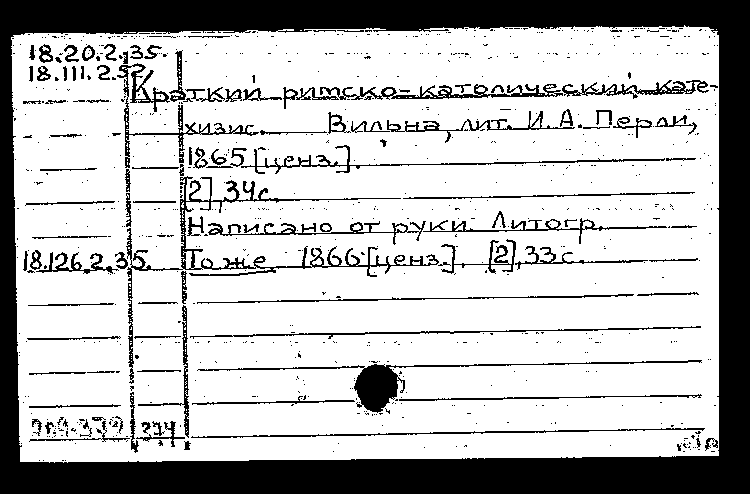 18.20.2.35.
18.111.2.52
Краткий римско-католический кате-
хизис. Вильна, лит. И. А. Перли,
1865 [ценз.].
[2], 34 с.
Написано от руки. Литогр.
18.126.2.35. То же. 1866 [ценз.]. [2], 33 с.
374